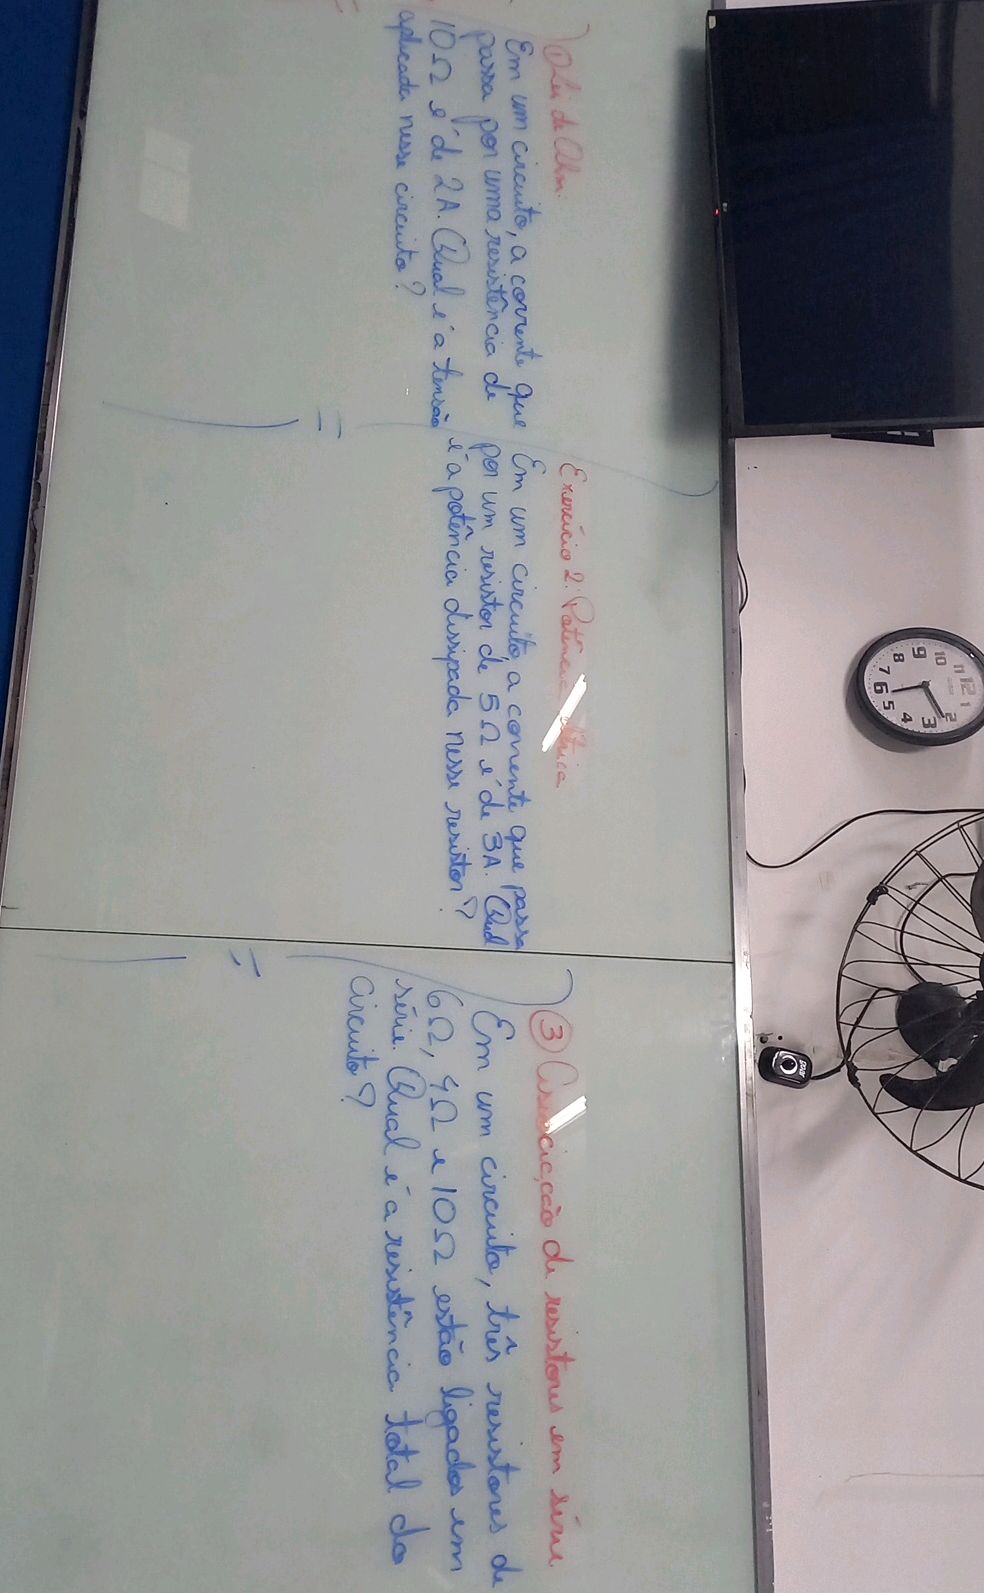 ① Lei de Ohm.
Em um circuito, a corrente que
passa por uma resistência de
10Ω é de 2A. Qual é a tensão
aplicada nesse circuito?
=
Exercício 2: Potência
Em um circuito, a corrente que passa
por um resistor de 5Ω é de 3A. Qual
é a potência dissipada nesse resistor?
③ Associação de resistores em série
Em um circuito, três resistores de
6Ω, 4Ω e 10Ω estão ligados em
série. Qual é a resistência total do
circuito?
=
12
1
2
3
4
5
6
7
8
9
10
11